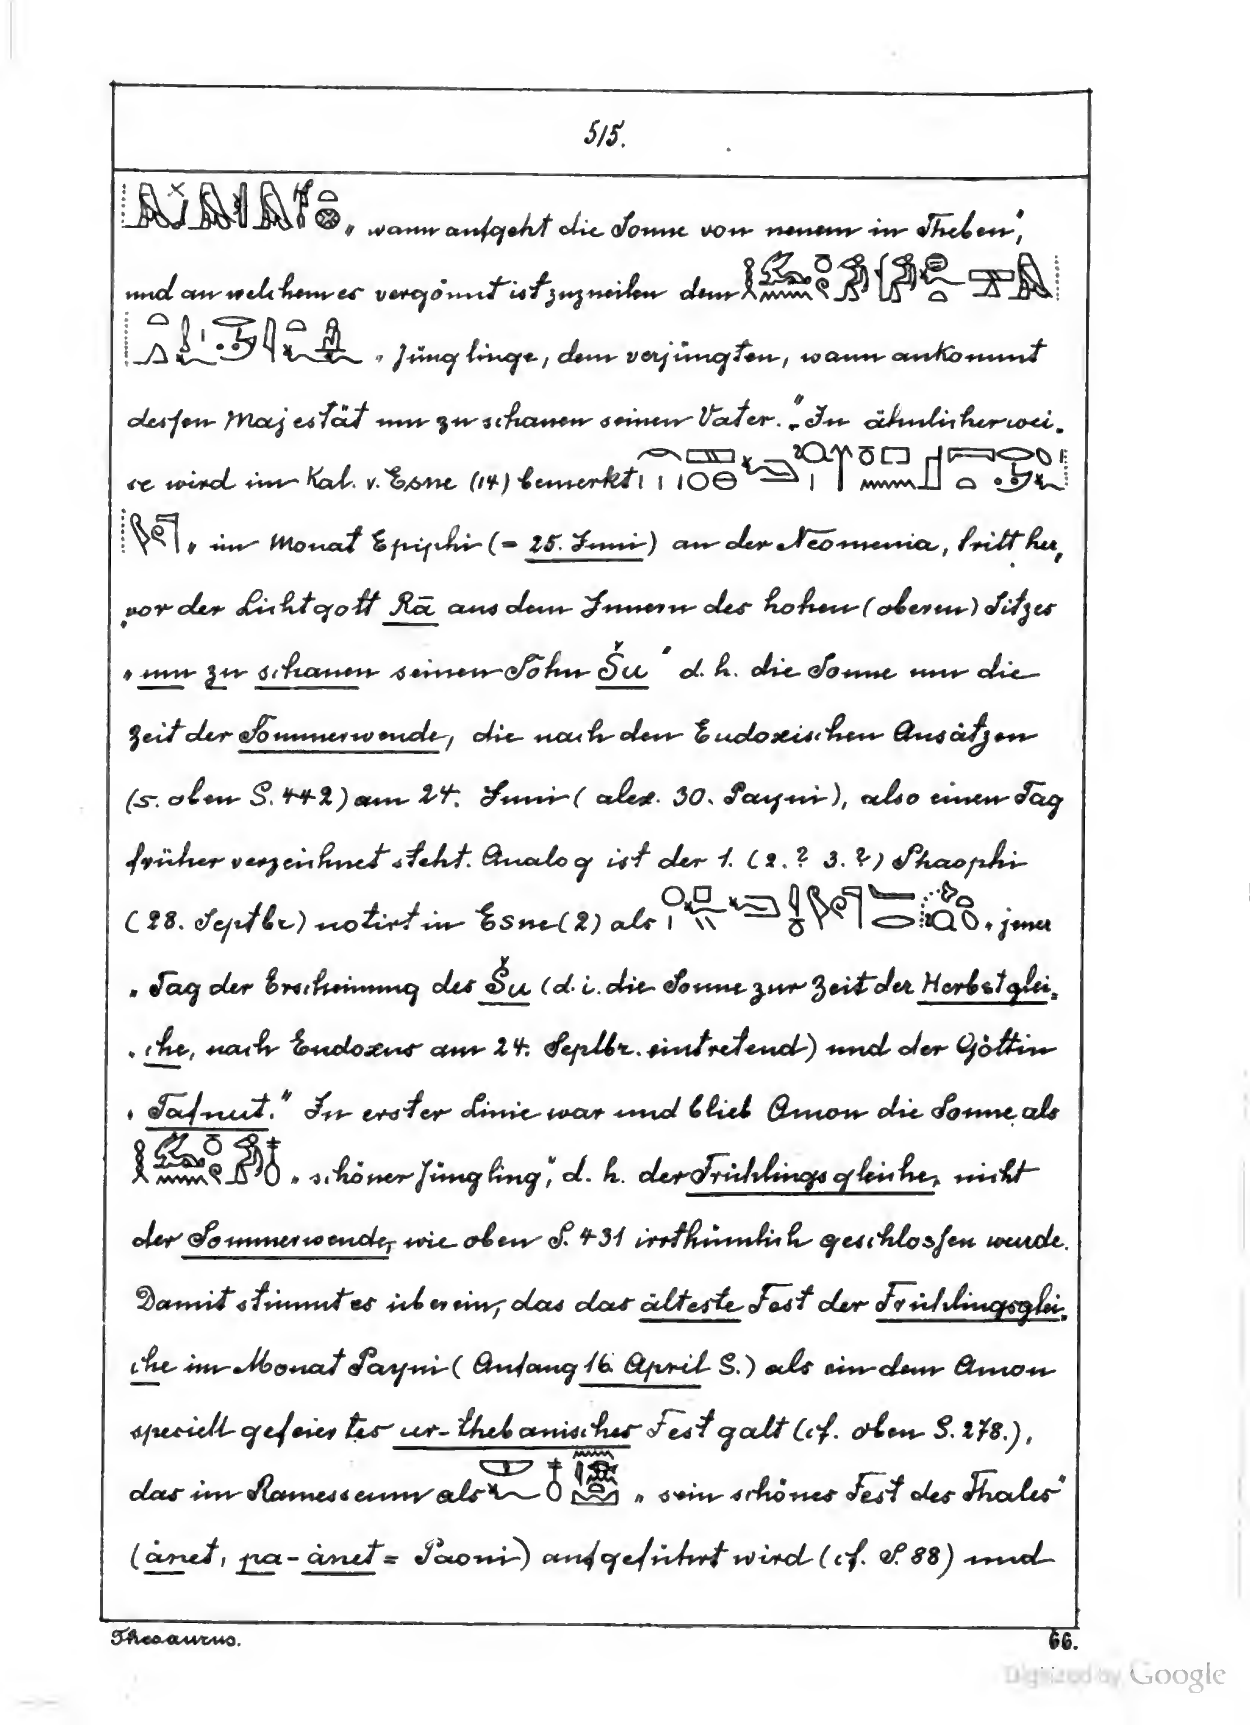 515.
„wann aufgeht die Sonne von neuem in Theben",
und an welchem es vergönnt ist zuzueilen dem
„Jünglinge, dem verjüngten, wann ankommt
dessen Majestät um zu schauen seinen Vater." In ähnlicher wei-
se wird im Kal. v. Esne (14) bemerkt
„im Monat Epiphi (= 25. Juni) an der Neomenia, tritt her-
„vor der Lichtgott Rā aus dem Innern des hohen (oberen) Sitzes
„um zu schauen seinen Sohn Šu" d. h. die Sonne um die
Zeit der Sommerwende, die nach den Eudoxischen Ansätzen
(s. oben S. 442) am 24. Juni (alex. 30. Payni), also einen Tag
früher verzeichnet steht. Analog ist der 1. (2.? 3.?) Phaophi
(28. Septbr) notirt in Esne (2) als „jener
„Tag der Erscheinung des Šu (d. i. die Sonne zur Zeit der Herbstglei-
„che, nach Eudoxus am 24. Septbr. eintretend) und der Göttin
„Tafnut." In erster Linie war und blieb Amon die Sonne als
„schöner Jüngling", d. h. der Frühlingsgleiche, nicht
der Sommerwende, wie oben S. 431 irrthümlich geschlossen wurde.
Damit stimmt es überein, das das älteste Fest der Frühlingsglei-
che im Monat Payni (Anfang 16. April S.) als ein dem Amon
speciell gefeiertes ur-thebanisches Fest galt (cf. oben S. 278.),
das im Ramesseum als „sein schönes Fest des Thales"
(ȧnet, pa-ȧnet = Paoni) aufgeführt wird (cf. S. 88) und
Thesaurus. 66.
Digitized by Google